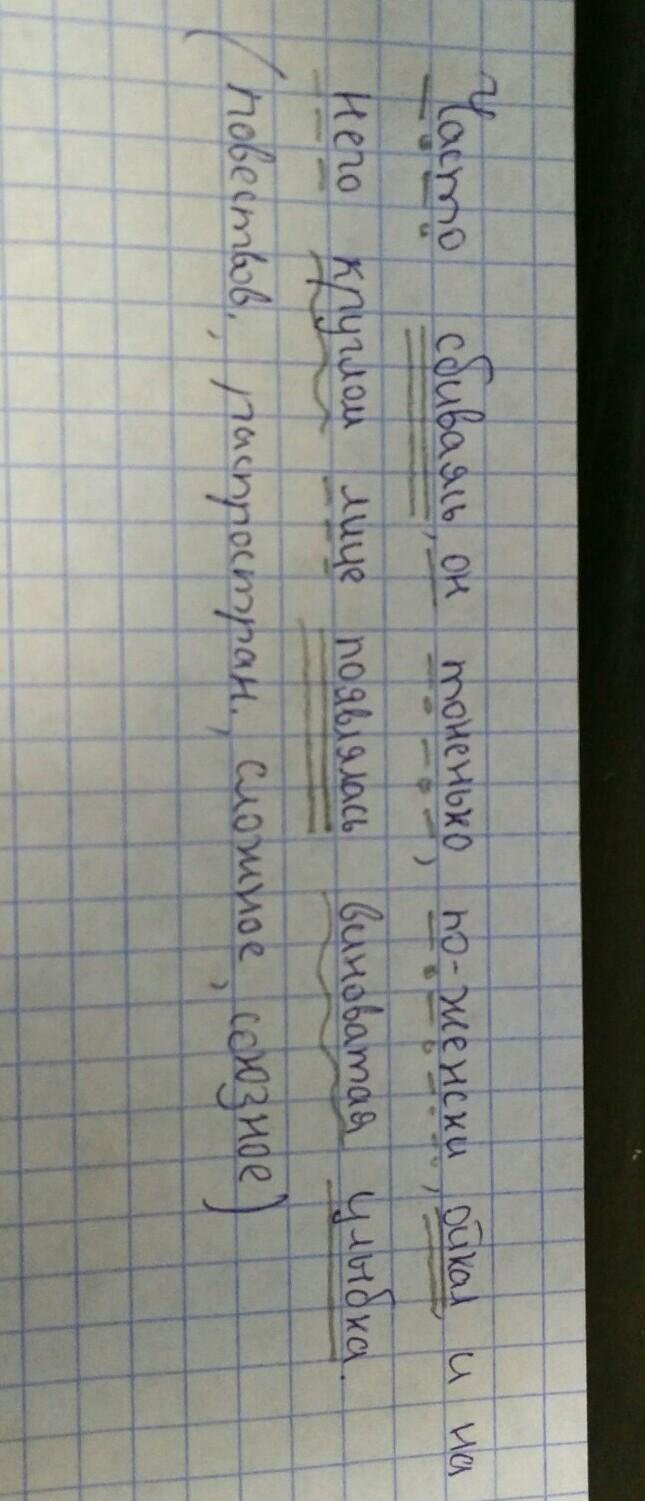 Часто сбиваясь, он тоненько, по-женски, ойкал и на
него круглом лице появлялась виноватая улыбка.
(повествов., распростран., сложное, союзное)